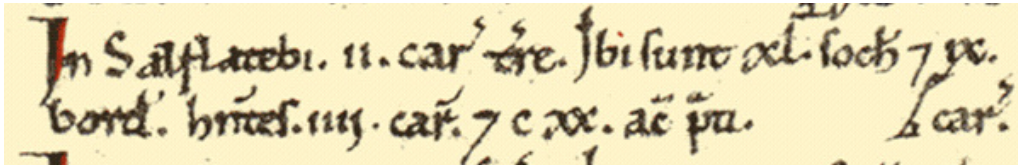 In Salflatebi. ii. car̃ t̃re. Ibi sunt xl. soch̃ ⁊ ix.
bord'. hñtes. iiij. car̃. ⁊ c xx. ac̃ p̃ti. car̃.